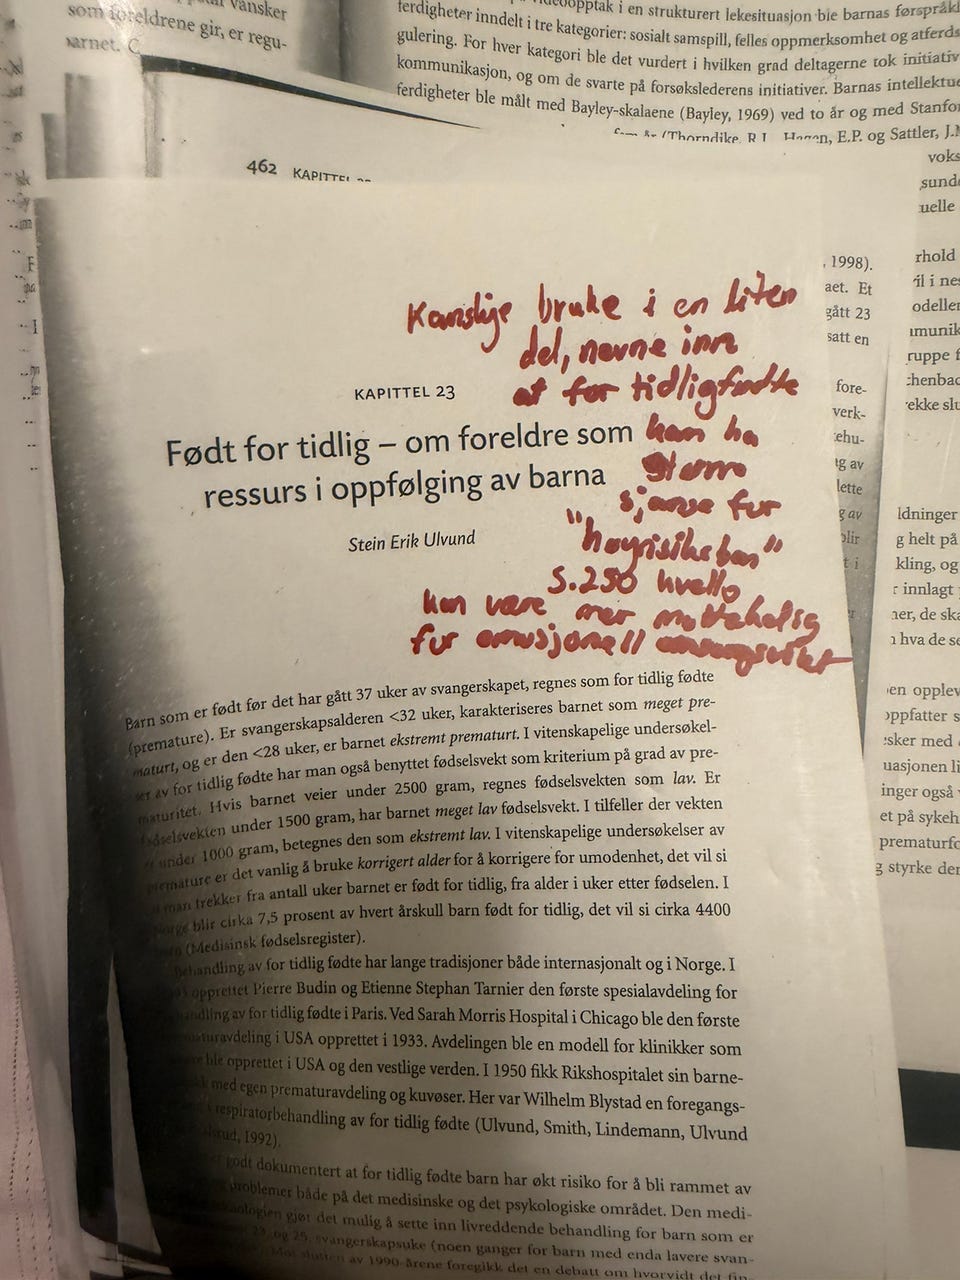 vansker
som foreldrene gir, er regu-
varnet.
i en strukturert lekesituasjon ble barnas førspråkl
ferdigheter inndelt i tre kategorier: sosialt samspill, felles oppmerksomhet og atferds
gulering. For hver kategori ble det vurdert i hvilken grad deltagerne tok initiativ
kommunikasjon, og om de svarte på forsøkslederens initiativer. Barnas intellektue
ferdigheter ble målt med Bayley-skalaene (Bayley, 1969) ved to år og med Stanfo
(Thorndike, R.L., Hagen, E.P. og Sattler, J.M
voks
sund
uelle
462 KAPITTEL
, 1998).
aet. Et
gått 23
satt en
fore-
verk-
ehu-
ig av
lette
g av
blir
t i
rhold
il i nes
odeller
munik
ruppe f
chenbac
ekke slu
ldninger
g helt på
kling, og
r innlagt
ner, de ska
n hva de se
en opplev
oppfatter s
sker med
uasjonen li
inger også
et på sykeh
prematurfo
g styrke der
Kanskje bruke i en liten
del, nevne inn
at for tidligfødte
kan ha
større
sjanse for
"høyrisikobarn"
S.250
kan være mer mottakelig
for emosjonell omsorgssvikt
KAPITTEL 23
Født for tidlig – om foreldre som
ressurs i oppfølging av barna
Stein Erik Ulvund
Barn som er født før det har gått 37 uker av svangerskapet, regnes som for tidlig fødte
(premature). Er svangerskapsalderen <32 uker, karakteriseres barnet som meget pre-
maturt, og er den <28 uker, er barnet ekstremt prematurt. I vitenskapelige undersøkel-
ser av for tidlig fødte har man også benyttet fødselsvekt som kriterium på grad av pre-
maturitet. Hvis barnet veier under 2500 gram, regnes fødselsvekten som lav. Er
fødselsvekten under 1500 gram, har barnet meget lav fødselsvekt. I tilfeller der vekten
er under 1000 gram, betegnes den som ekstremt lav. I vitenskapelige undersøkelser av
premature er det vanlig å bruke korrigert alder for å korrigere for umodenhet, det vil si
at man trekker fra antall uker barnet er født for tidlig, fra alder i uker etter fødselen. I
Norge blir cirka 7,5 prosent av hvert årskull barn født for tidlig, det vil si cirka 4400
(Medisinsk fødselsregister).
Behandling av for tidlig fødte har lange tradisjoner både internasjonalt og i Norge. I
opprettet Pierre Budin og Etienne Stephan Tarnier den første spesialavdeling for
behandling av for tidlig fødte i Paris. Ved Sarah Morris Hospital i Chicago ble den første
prematuravdeling i USA opprettet i 1933. Avdelingen ble en modell for klinikker som
ble opprettet i USA og den vestlige verden. I 1950 fikk Rikshospitalet sin barne-
med egen prematuravdeling og kuvøser. Her var Wilhelm Blystad en foregangs-
respiratorbehandling av for tidlig fødte (Ulvund, Smith, Lindemann, Ulvund
1992).
godt dokumentert at for tidlig fødte barn har økt risiko for å bli rammet av
problemer både på det medisinske og det psykologiske området. Den medi-
gjør det mulig å sette inn livreddende behandling for barn som er
og 25. svangerskapsuke (noen ganger for barn med enda lavere svan-
Mot slutten av 1990-årene foregikk det en debatt om hvorvidt det